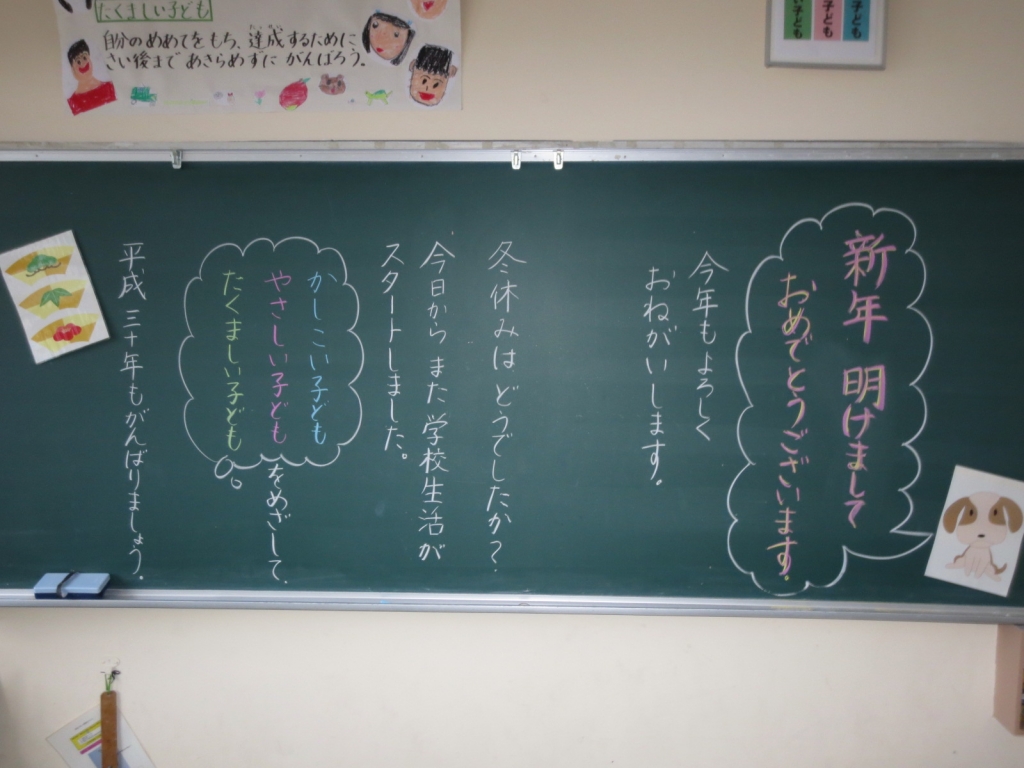 たくましい子ども
自分のめあてをもち、達成するために、
さい後まであきらめずにがんばろう。
子ども
子ども
子ども
新年 明けまして
おめでとうございます。
今年もよろしく
おねがいします。
冬休みは どうでしたか?
今日から また 学校生活が
スタートしました。
かしこい子ども
やさしい子ども
たくましい子ども
をめざして、
平成 三十年もがんばりましょう。